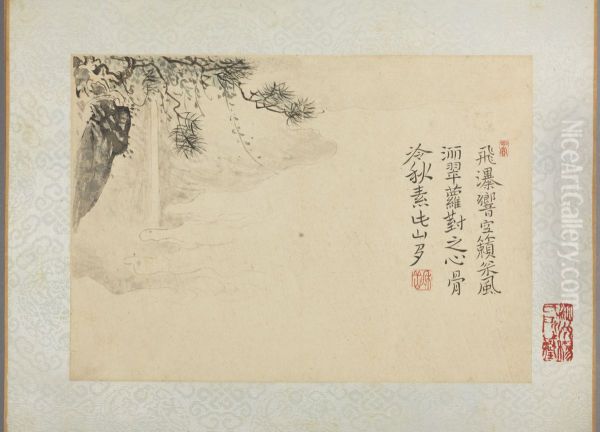 飛瀑響空籟風
洒翠蘿對之心骨
冷秋素此山多
NiceArtGallery.com